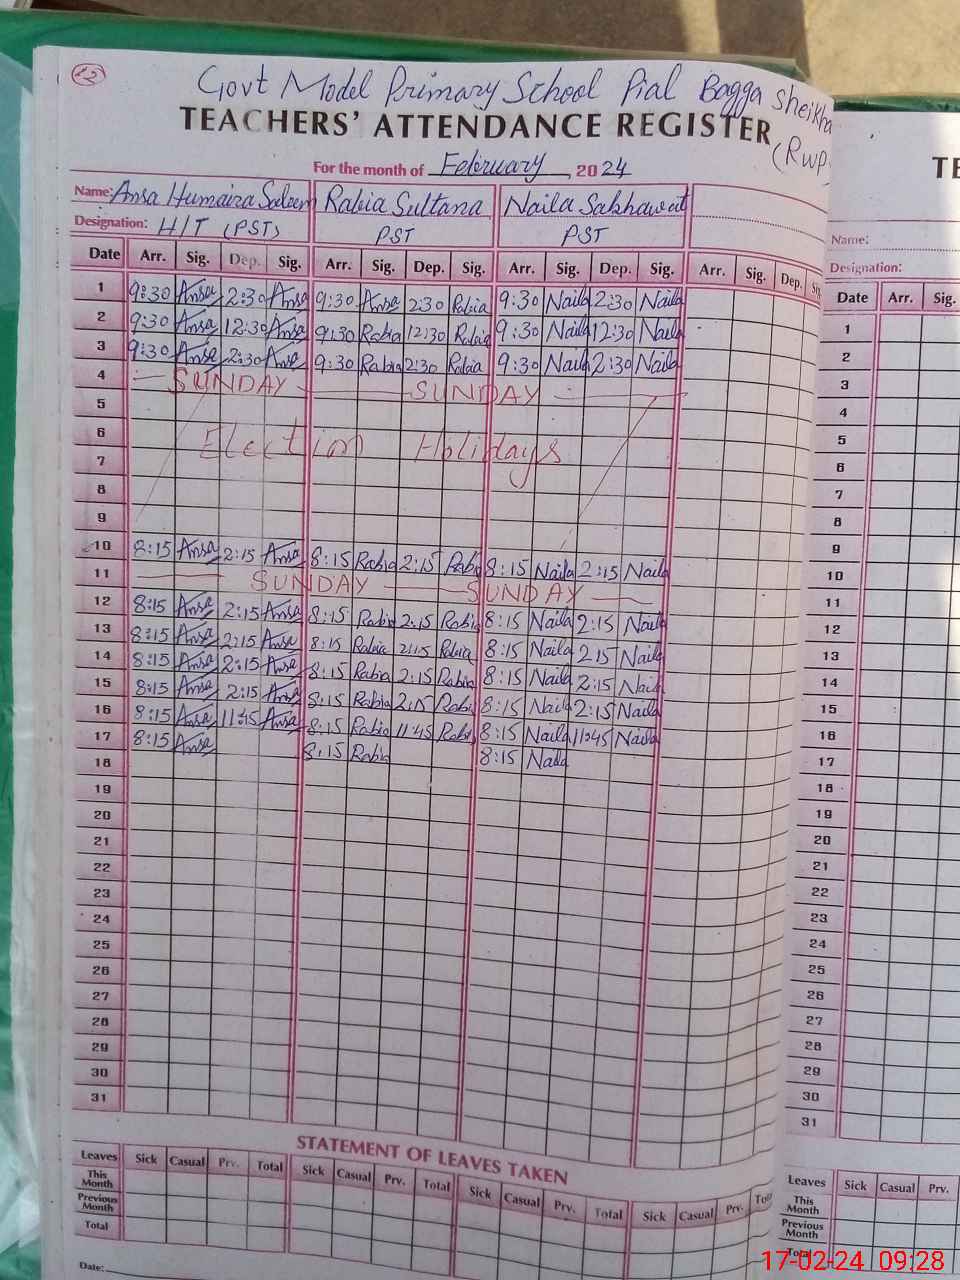 12
Govt Model Primary School Pial Bagga Sheikha
(Rwp)
TEACHERS' ATTENDANCE REGISTER
For the month of February, 2024
Name: Ansa Humaira Saleem Rabia Sultana Naila Sakhawat
Designation: H/T (PST) PST PST
Date Arr. Sig. Dep. Sig. Arr. Sig. Dep. Sig. Arr. Sig. Dep. Sig. Arr. Sig. Dep. Sig.
1 9:30 Ansa 2:30 Ansa 9:30 Ansa 2:30 Rabia 9:30 Naila 2:30 Naila
2 9:30 Ansa 12:30 Ansa 9:30 Rabia 12:30 Rabia 9:30 Naila 12:30 Naila
3 9:30 Ansa 2:30 Ansa 9:30 Rabia 2:30 Rabia 9:30 Naila 2:30 Naila
4 SUNDAY SUNDAY
5
6 Election Holidays
7
8
9
10 8:15 Ansa 2:15 Ansa 8:15 Rabia 2:15 Rabia 8:15 Naila 2:15 Naila
11 SUNDAY SUNDAY
12 8:15 Ansa 2:15 Ansa 8:15 Rabia 2:15 Rabia 8:15 Naila 2:15 Naila
13 8:15 Ansa 2:15 Ansa 8:15 Rabia 2:15 Rabia 8:15 Naila 2:15 Naila
14 8:15 Ansa 2:15 Ansa 8:15 Rabia 2:15 Rabia 8:15 Naila 2:15 Naila
15 8:15 Ansa 2:15 Ansa 8:15 Rabia 2:15 Rabia 8:15 Naila 2:15 Naila
16 8:15 Ansa 11:45 Ansa 8:15 Rabia 11:45 Rabia 8:15 Naila 11:45 Naila
17 8:15 Ansa 8:15 Rabia 8:15 Naila
18
19
20
21
22
23
24
25
26
27
28
29
30
31
STATEMENT OF LEAVES TAKEN
Leaves Sick Casual Prv. Total Sick Casual Prv. Total Sick Casual Prv. Total Sick Casual Prv.
This Month
Previous Month
Total
Date:
Name:
Designation:
Date Arr. Sig.
1
2
3
4
5
6
7
8
9
10
11
12
13
14
15
16
17
18
19
20
21
22
23
24
25
26
27
28
29
30
31
Leaves Sick Casual Prv.
This Month
Previous Month
Total
17-02-24 09:28